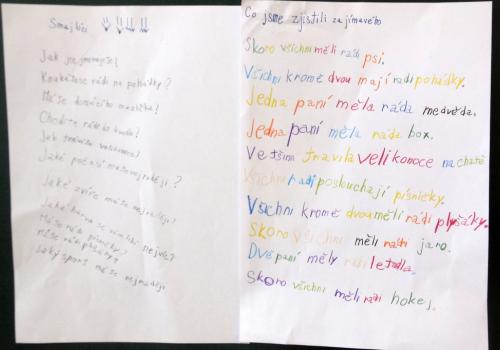 Jak se jmenujete?
Koukáte se rádi na pohádky?
Máte domácího mazlíčka?
Chodíte rádi do
Jak trávíte velikonoce?
Jaké počasí máte nejraději?
Jaké zvíře máte nejraději?
Jaká barva se vám líbí nejvíc?
Máte rádi písničky?
máte rádi plyšáky?
Jaký sport máte nejraději
Co jsme zjistili zajímavého
Skoro všichni měli rádi psi.
Všichni kromě dvou mají rádi pohádky.
Jedna paní měla ráda medvěda.
Jedna paní měla ráda box.
Vetšina travila velikonoce na chatě
Všichni rádi poslouchají písničky.
Všichni kromě dvou měli rádi plyšáky.
Skoro všichni měli rádi jaro.
Dvě paní měly rádi letadla.
Skoro všichni měli rádi hokej.